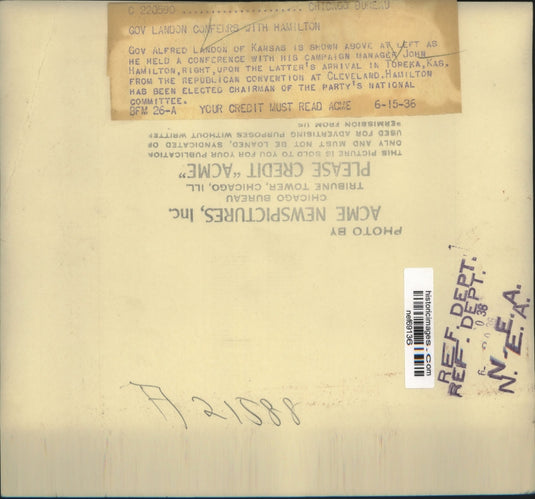 C 220590 ........................ CHICAGO BUREAU
GOV LANDON CONFERS WITH HAMILTON
GOV ALFRED LANDON OF KANSAS IS SHOWN ABOVE AT LEFT AS
HE HELD A CONFERENCE WITH HIS CAMPAIGN MANAGER JOHN
HAMILTON,RIGHT,UPON THE LATTER'S ARRIVAL IN TOPEKA,KAS.
FROM THE REPUBLICAN CONVENTION AT CLEVELAND.HAMILTON
HAS BEEN ELECTED CHAIRMAN OF THE PARTY'S NATIONAL
COMMITTEE.
BFM 26-A YOUR CREDIT MUST READ ACME 6-15-36
PHOTO BY
ACME NEWSPICTURES, Inc.
CHICAGO BUREAU
TRIBUNE TOWER, CHICAGO, ILL.
PLEASE CREDIT "ACME"
THIS PICTURE IS SOLD TO YOU FOR YOUR PUBLICATION
ONLY AND MUST NOT BE LOANED, SYNDICATED OR
USED FOR ADVERTISING PURPOSES WITHOUT WRITTEN
PERMISSION FROM US
historicimages.com
nef69135
REF. DEPT.
REF. DEPT.
N. E. A.
N. E. A.
A 21588